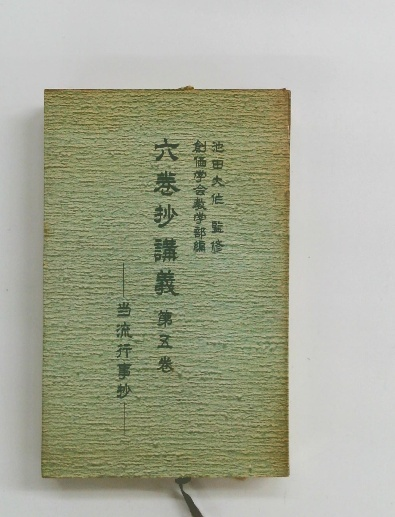 池田大作 監修
創価学会教学部編
六巻抄講義 第五巻
――当流行事抄――